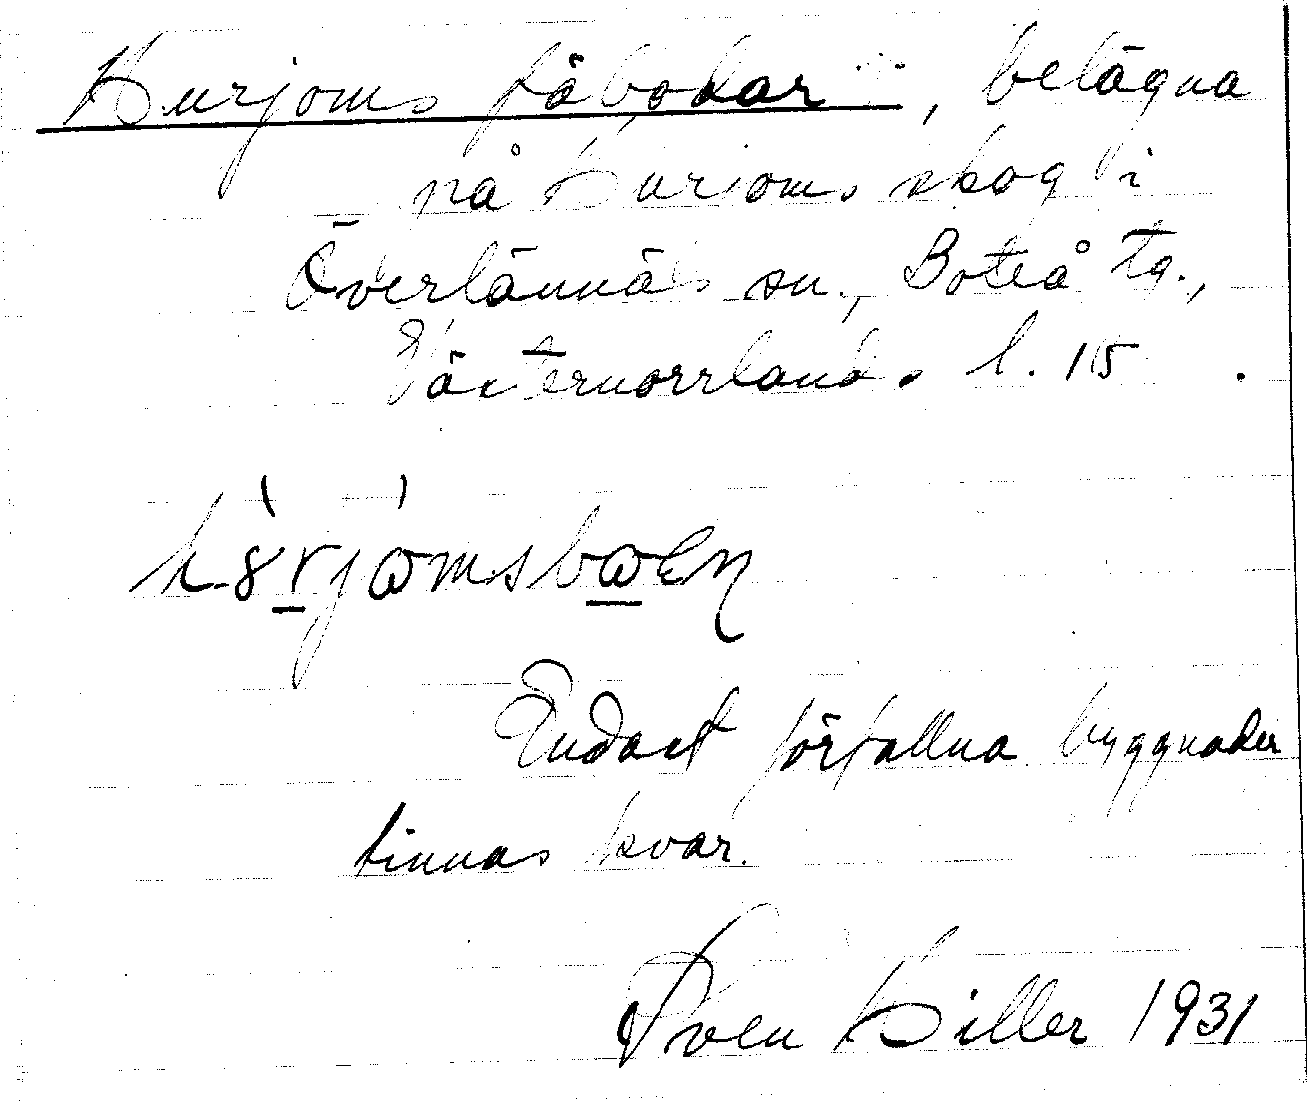 Kurjoms fäbodar, belägna
på Kurjoms skog i
Överlännäs sn., Boteå tg.,
Västernorrlands l. 115.
Endast förfallna byggnader
finnas kvar.
Sven Hiller 1931